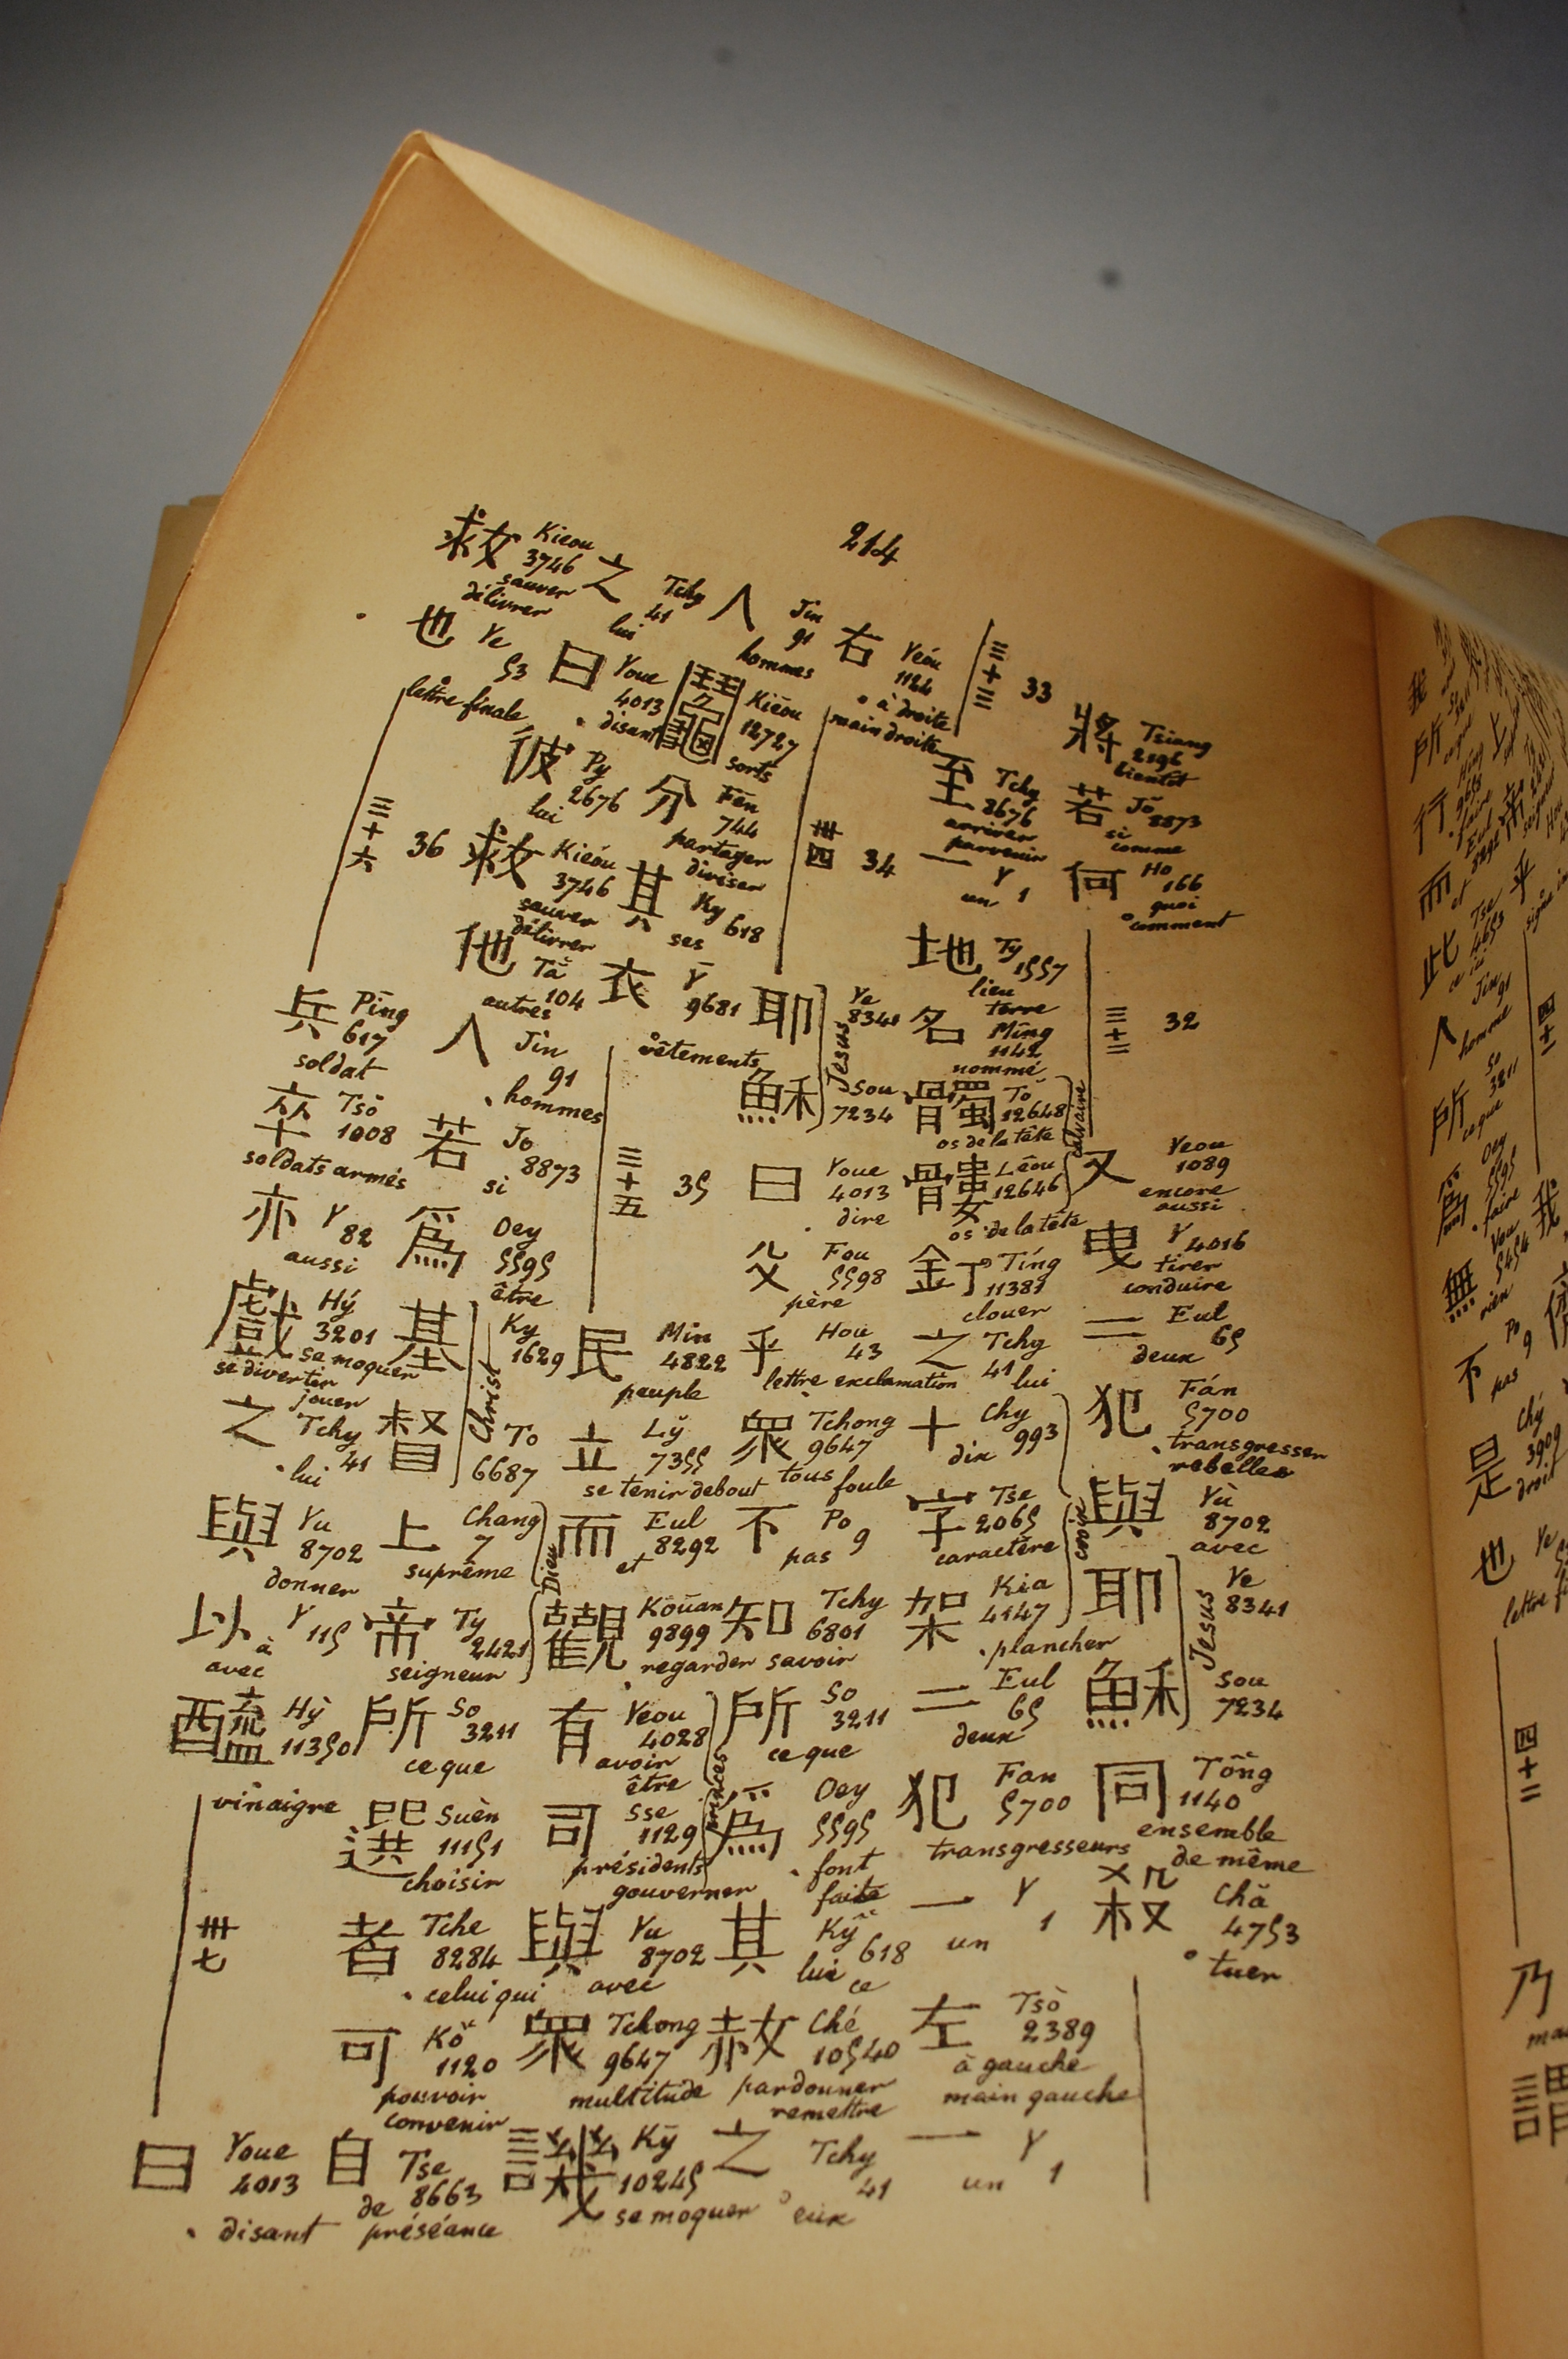 214
將 Tsiang 2196 bientôt
若 Jŏ 8873 si comme
何 Ho 166 quoi comment
三十二 32
又 Yeou 1089 encore aussi
曳 Y 4016 tirer conduire
二 Eul 65 deux
犯 Fán 5700 transgresser rebelles
與 Yù 8702 avec
耶 Ye 8341
穌 Sou 7234
Jesus
同 Tŏng 1140 ensemble de même
殺 Chă 4753 tuer
三十三 33
至 Tchy 8676 arriver parvenir
一 Y 1 un
地 Ty 1557 lieu terre
名 Mîng 1142 nommé
髑 Tŏ 12648 os de la tête
髏 Lêou 12646 os de la tête
calvaire
釘 Tíng 11381 clouer
之 Tchy 41 lui
十 Chy 993 dix
字 Tse 2065 caractère
架 Kia 4147 plancher
croix
二 Eul 65 deux
犯 Fan 5700 transgresseurs
一 Y 1 un
左 Tsò 2389 à gauche main gauche
一 Y 1 un
右 Yeóu 1124 à droite main droite
卅四 34
耶 Ye 8341
穌 Sou 7234
Jesus
曰 Youe 4013 dire
父 Fou 5598 père
乎 Hou 43 lettre exclamation
眾 Tchong 9647 tous foule
不 Po 9 pas
知 Tchy 6801 savoir
所 So 3211 ce que
為 Oey 5595 font faite
其 Kỹ 618 lui ce
赦 Ché 10540 pardonner remettre
之 Tchy 41 eux
人 Jin 91 hommes
鬮 Kiēou 12727 sorts
分 Fēn 744 partager diviser
其 Ky 618 ses
衣 Ȳ 9681 vêtements
三十五 35
民 Min 4822 peuple
立 Lў 7355 se tenir debout
而 Eul 8292 et
觀 Koūan 9899 regarder
有 Yeou 4028 avoir être
司 Sse 1129 présidents gouverner
princes
與 Yu 8702 avec
眾 Tchong 9647 multitude
譏 Kȳ 10245 se moquer
之 Tchy 41 lui
曰 Youe 4013 disant
彼 Py 2676 lui
救 Kieóu 3746 sauver délivrer
他 Tă 104 autres
人 Jin 91 hommes
若 Jo 8873 si
為 Oey 5595 être
基 Ky 1629
督 To 6687
Christ
上 Chang 7 suprême
帝 Ty 2421 seigneur
Dieu
所 So 3211 ce que
選 Suèn 11151 choisir
者 Tche 8284 celui qui
可 Kŏ 1120 pouvoir convenir
自 Tse 8663 de préséance
救 Kieou 3746 sauver délivrer
也 Ye 53 lettre finale
三十六 36
兵 Pīng 617 soldat
卒 Tsŏ 1008 soldats armés
亦 Y 82 aussi
戲 Hý 3201 se moquer se divertir jouer
之 Tchy 41 lui
與 Yu 8702 donner
以 Y 115 à avec
醯 Hỳ 11350 vinaigre
卅七
曰 Youe 4013 disant
我
所
行 faire
而 Eul 8292 et
此 Tse 4653
人 Jin 91 homme
所 So 3211 ce que
為 Oey 5595 faire
無 rien
不 Po 9 pas
是 Chý 3909 droit
也 Ye
上
乎
四十一
我
四十二
乃